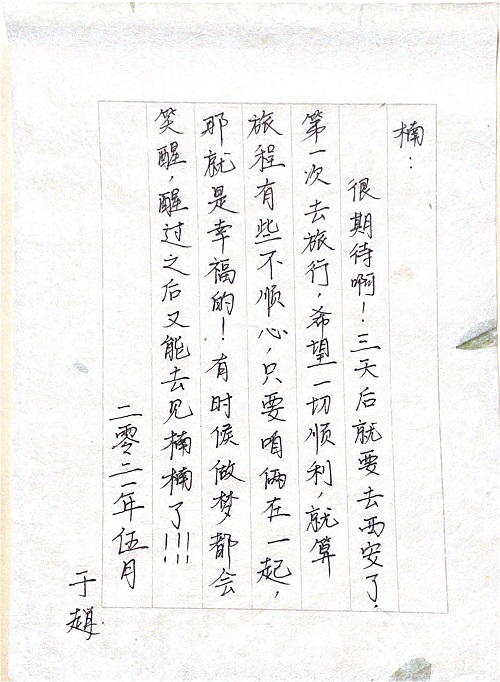 楠：
很期待啊！三天后就要去西安了．
第一次去旅行，希望一切顺利，就算
旅程有些不顺心，只要咱俩在一起，
那就是幸福的！有时候做梦都会
笑醒，醒过之后又能去见楠楠了！！！
二零二一年伍月
于趙．